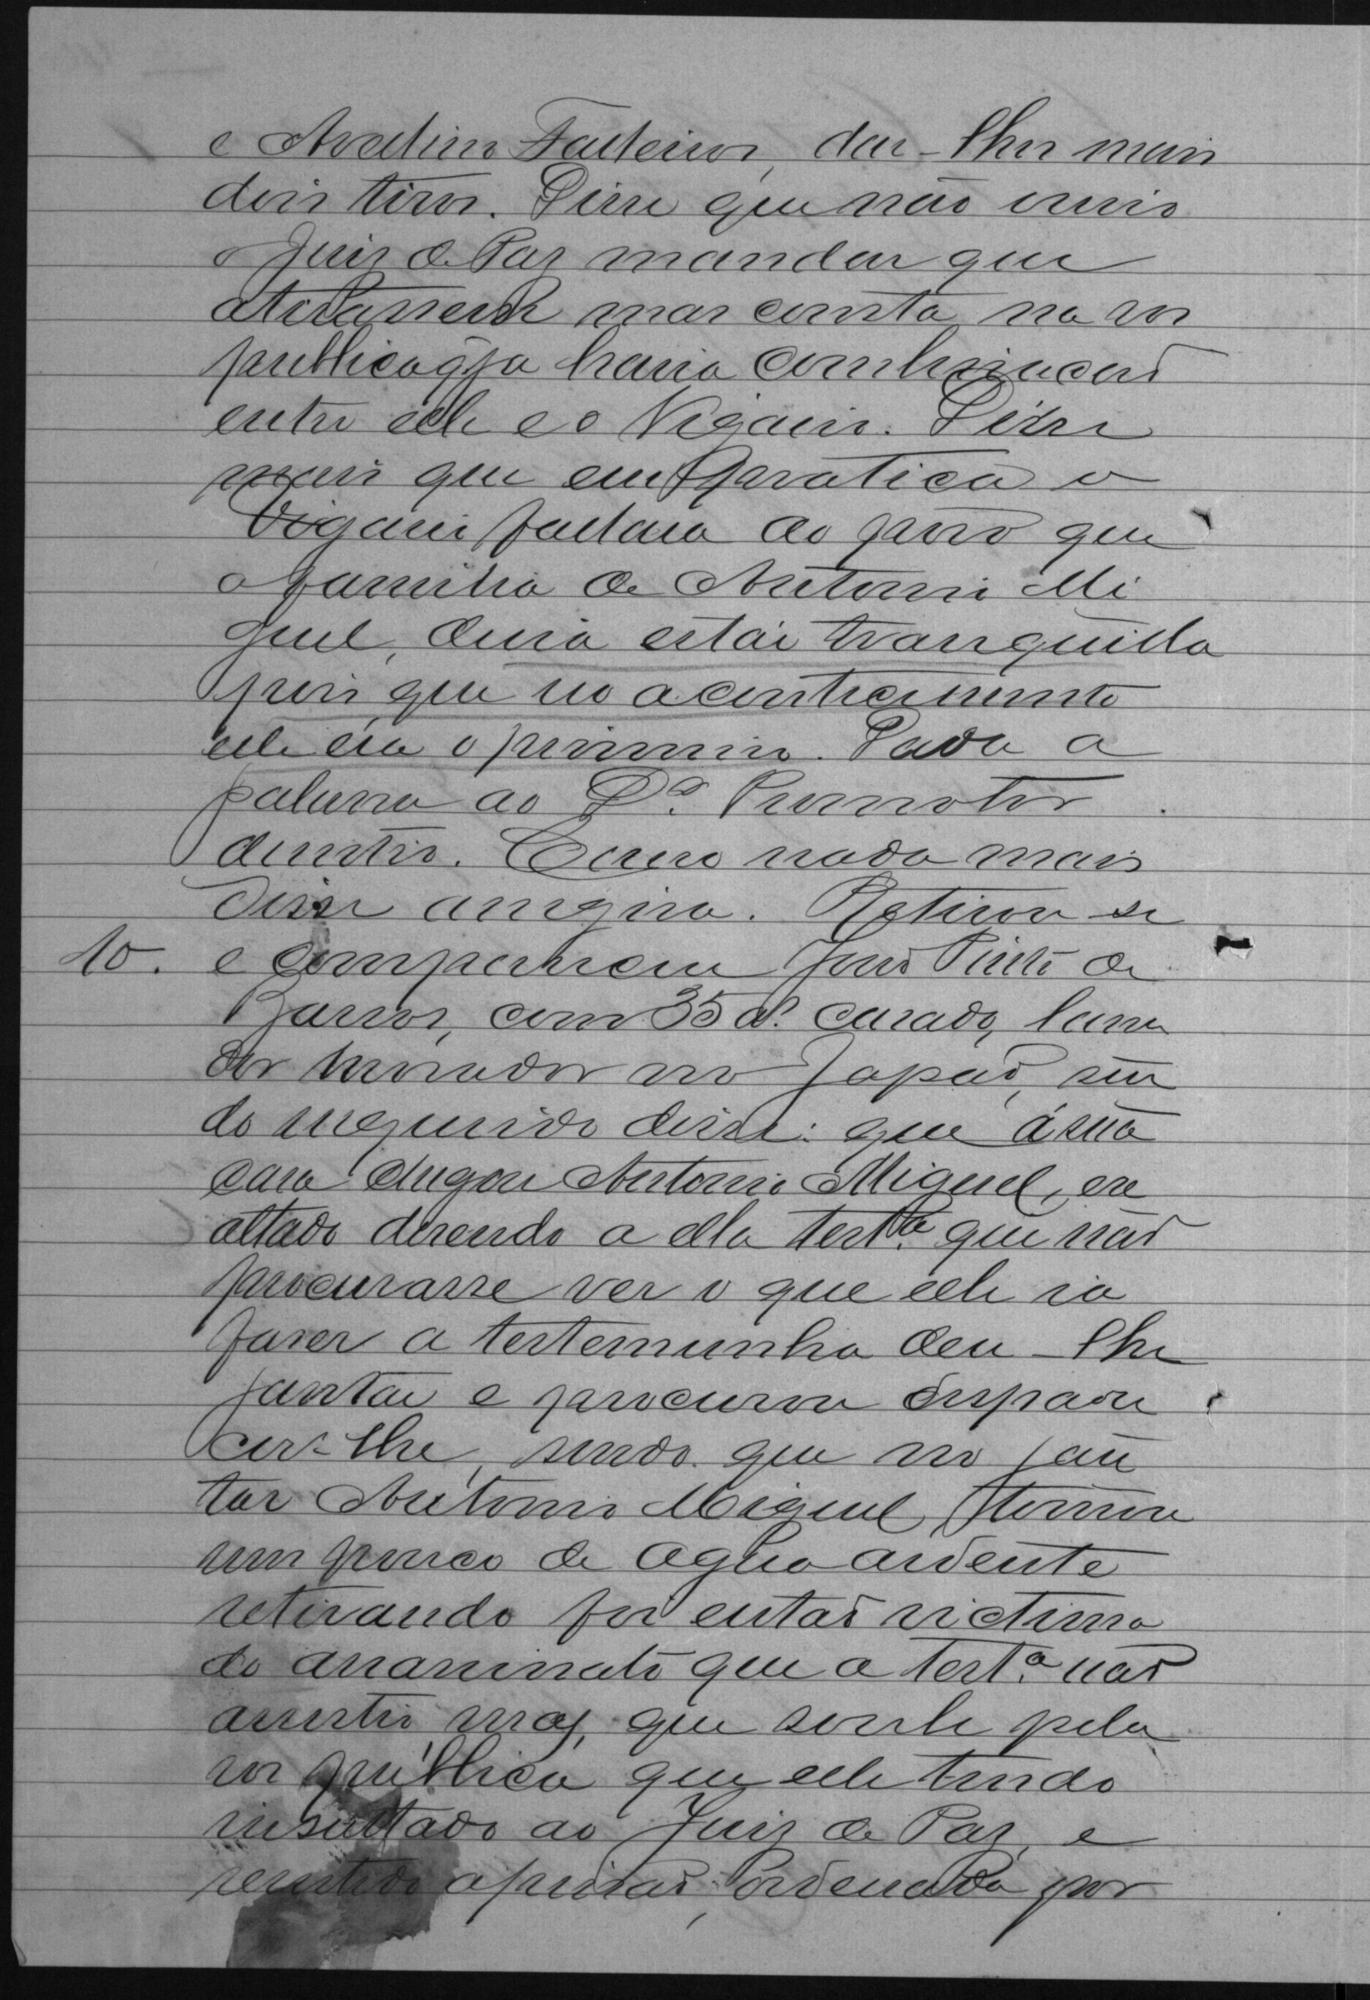 e Avelino Falleiros, dar-lhes mais
dois tiros. Disse que não ouvio
o Juis de Pas mandar que
atirassem mas consta na vos
publica q̃ ja havia combinacaõ
entre elle e o Vigario. Disse
mais que em pratica o
Vigario fallara ao povo que
a familia de Antonio Mi
guel, devia estár tranquilla
pois que no acontecimento
elle era o primeiro. Dada a
palavra ao Dr. Promotor
desistio. E como nada mais
disse assigna. Retirou-se
10. e compareceu José Pinto de
Barros, com 35 a. casado, lavra
dor morador no Japaõ, sen
do inquirido disse: que á sua
casa chegou Antonio Miguel, exe
altado disendo a ella testa. que não
procurasse ver o que elle ia
faser a testemunha deu-lhe
jantar e procurou despare
cer-lhe, sendo que no jan
tar Antonio Miguel tomou
um pouco de agua ardente
retirando foi entaõ victima
do assassinato que a testa. não
assistio, mas, que soube pela
vos publica que elle tendo
insultado ao Juis de Pas, e
resistido a prisaõ, ordenada por